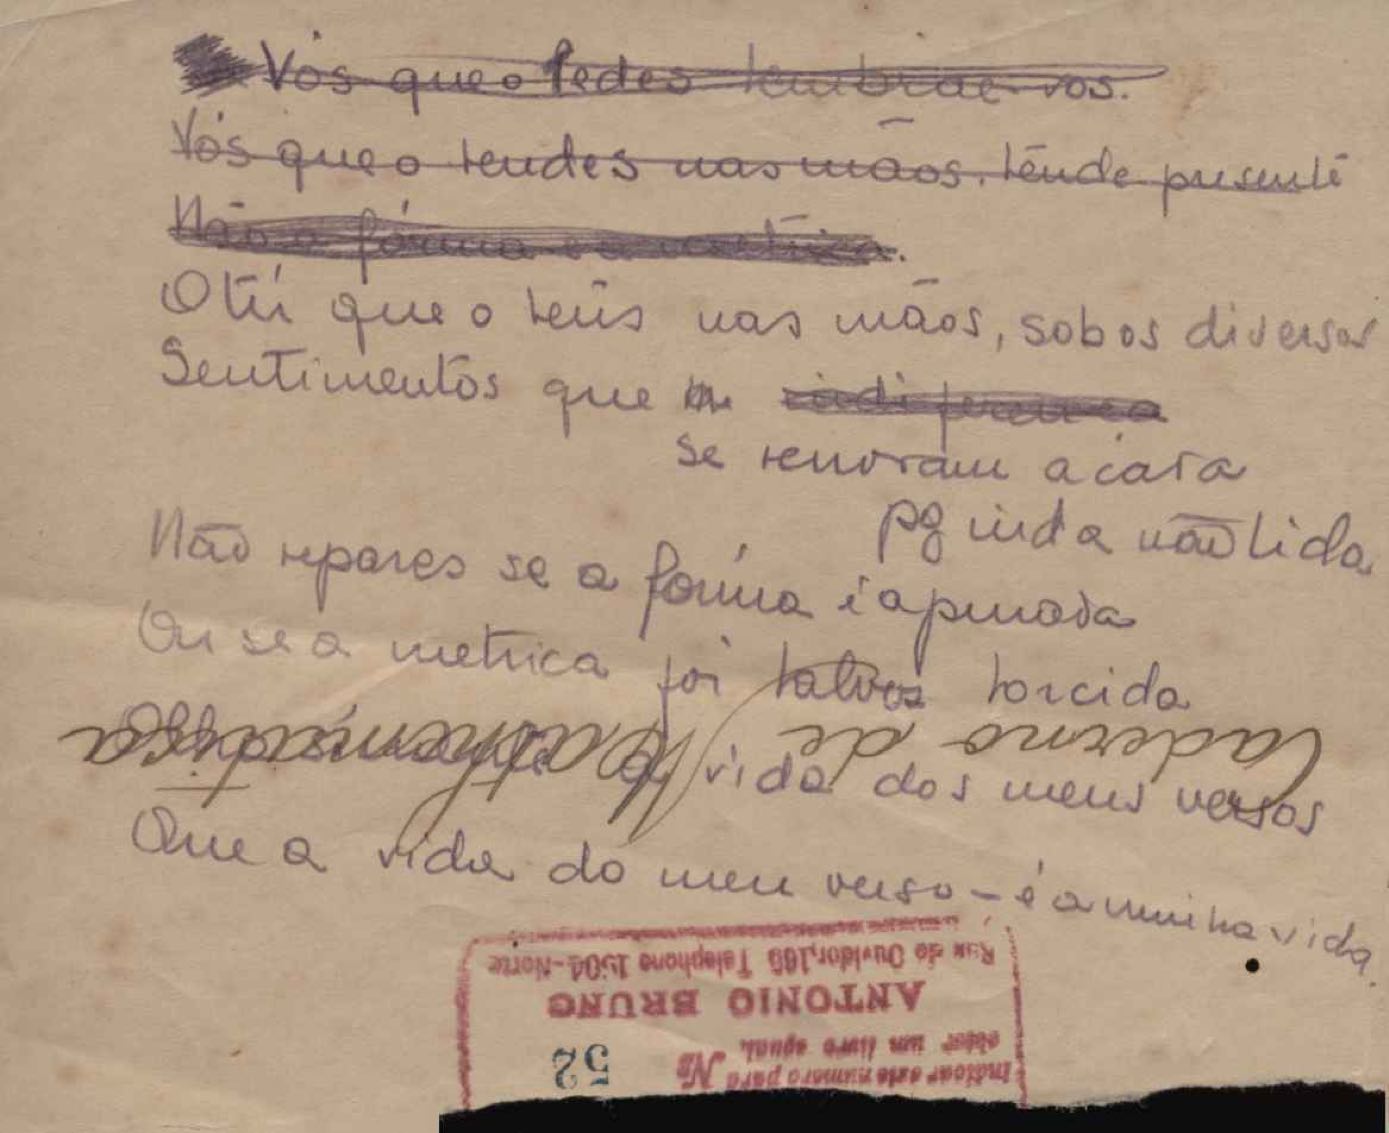 Vós que o Pedes lembrae-vos.
Vós que o tendes nas mãos, tende presente
Não a fórma e a metrica.
O tu que o tens nas mãos, sob os diversos
Sentimentos que
se renovam a cada
pg inda não lida
Não repares se a fórma é apurada
Ou se a metrica foi talvez torcida
a vida dos meus versos
Caderno de Mathemática
Que a vida do meu verso - é a minha vida.
Rua do Ouvidor, 169 Telephone 1504-Norte
ANTONIO BRUNO
obter um livro egual.
Indicar este numero para Nº 52